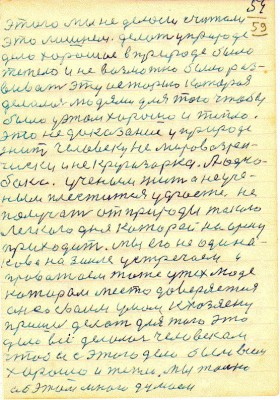 54
59
этого мы не делаем считаем
это лишнем. делать у природе
дело хорошае в природе было
тепло и не возможно было раз
вивать эту историю которая
делалася людями для того чтобы
было у этом хорошо и тепло.
это не доказание у природе
жить человеку не мировозре
ческа и не кругозорка. Людко
учоным жить а не уче
ным плестися у хвосте не
получать от природы такого
легкого дня которай на арену
приходить. Мы его не одина
кова на земле устречаем и
проважаем тоже у тех людей
которам место доверяется
со своим умом к хозяену
пришол делать для того это
дело всё делалося человекам
чтобы с этого дело было всем
хорошо и тепло, мы только
об этом много думаем